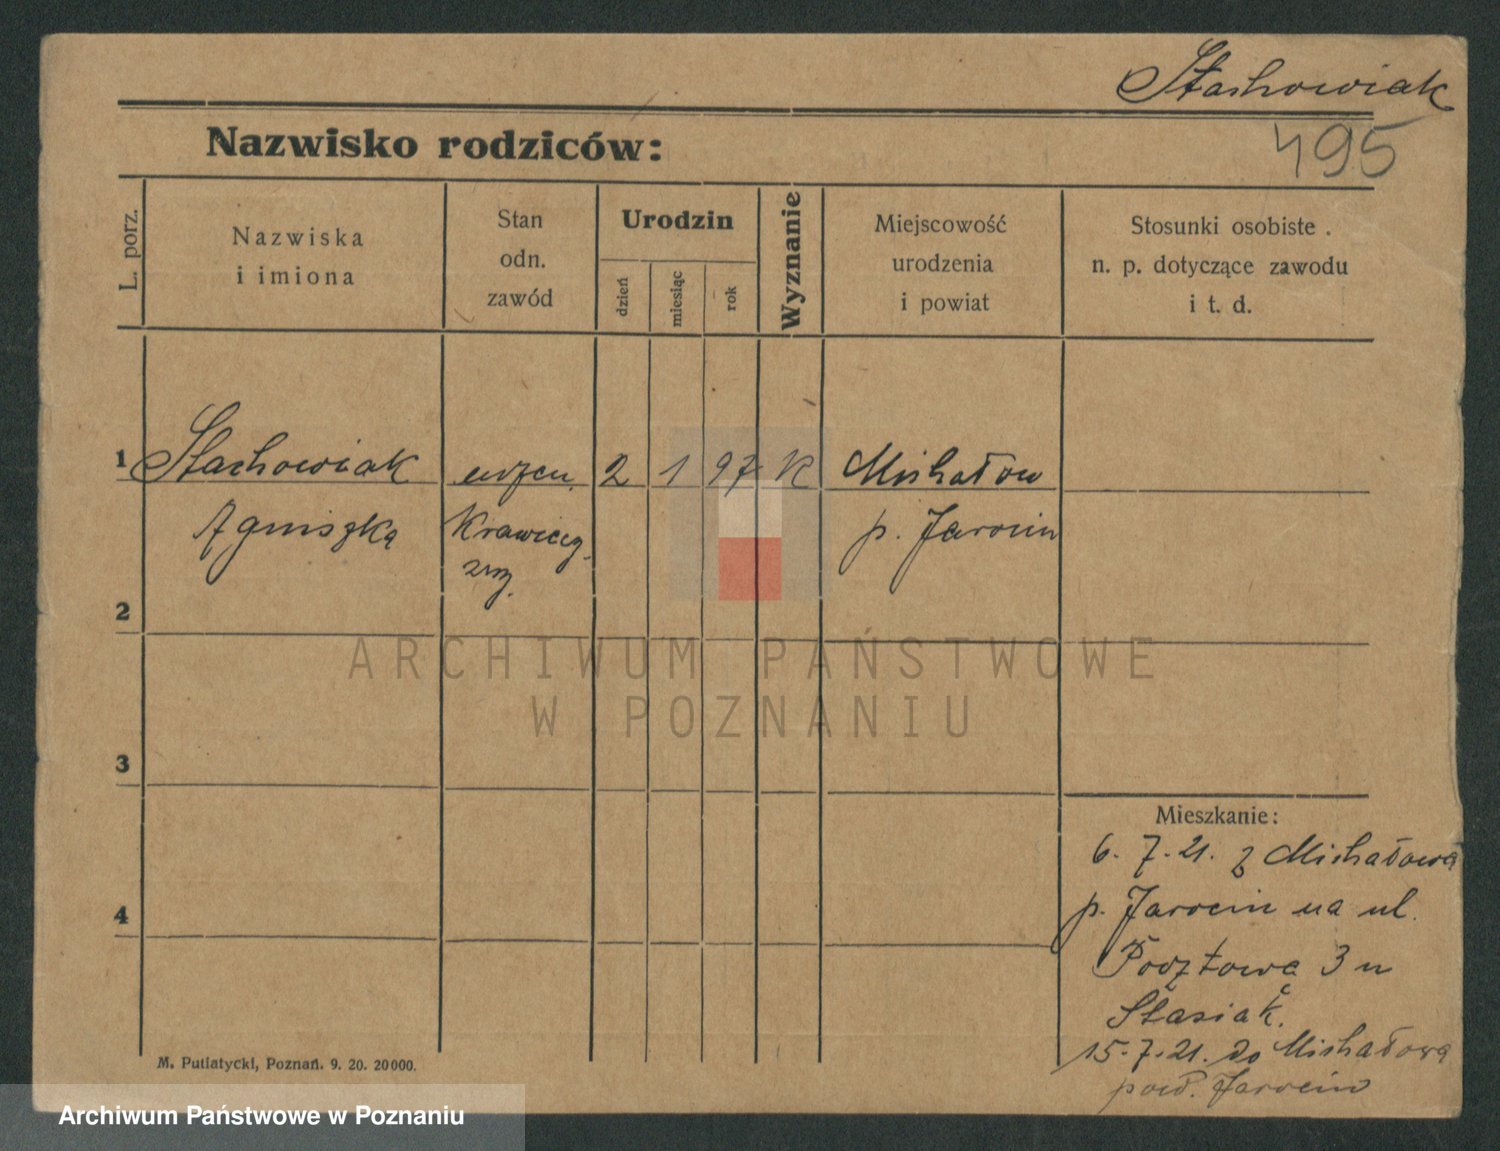 Stachowiak
495
Nazwisko rodziców:
L. porz.
Nazwiska
i imiona
Stan
odn.
zawód
Urodzin
dzień
miesiąc
rok
Wyznanie
Miejscowość
urodzenia
i powiat
Stosunki osobiste .
n. p. dotyczące zawodu
i t. d.
1 Stachowiak uczen. 2 1 97 K Michałow
Agniszka Krawiecz p. Jarocin
2
3
4
Mieszkanie:
6. 7. 21. z Michałowa
p. Jarocin na ul.
Pocztowa 3 u
Stasiak.
15. 7. 21. do Michałowa
pow. Jarocin
M. Putiatycki, Poznań. 9. 20. 20000.
ARCHIWUM PAŃSTWOWE
W POZNANIU
Archiwum Państwowe w Poznaniu